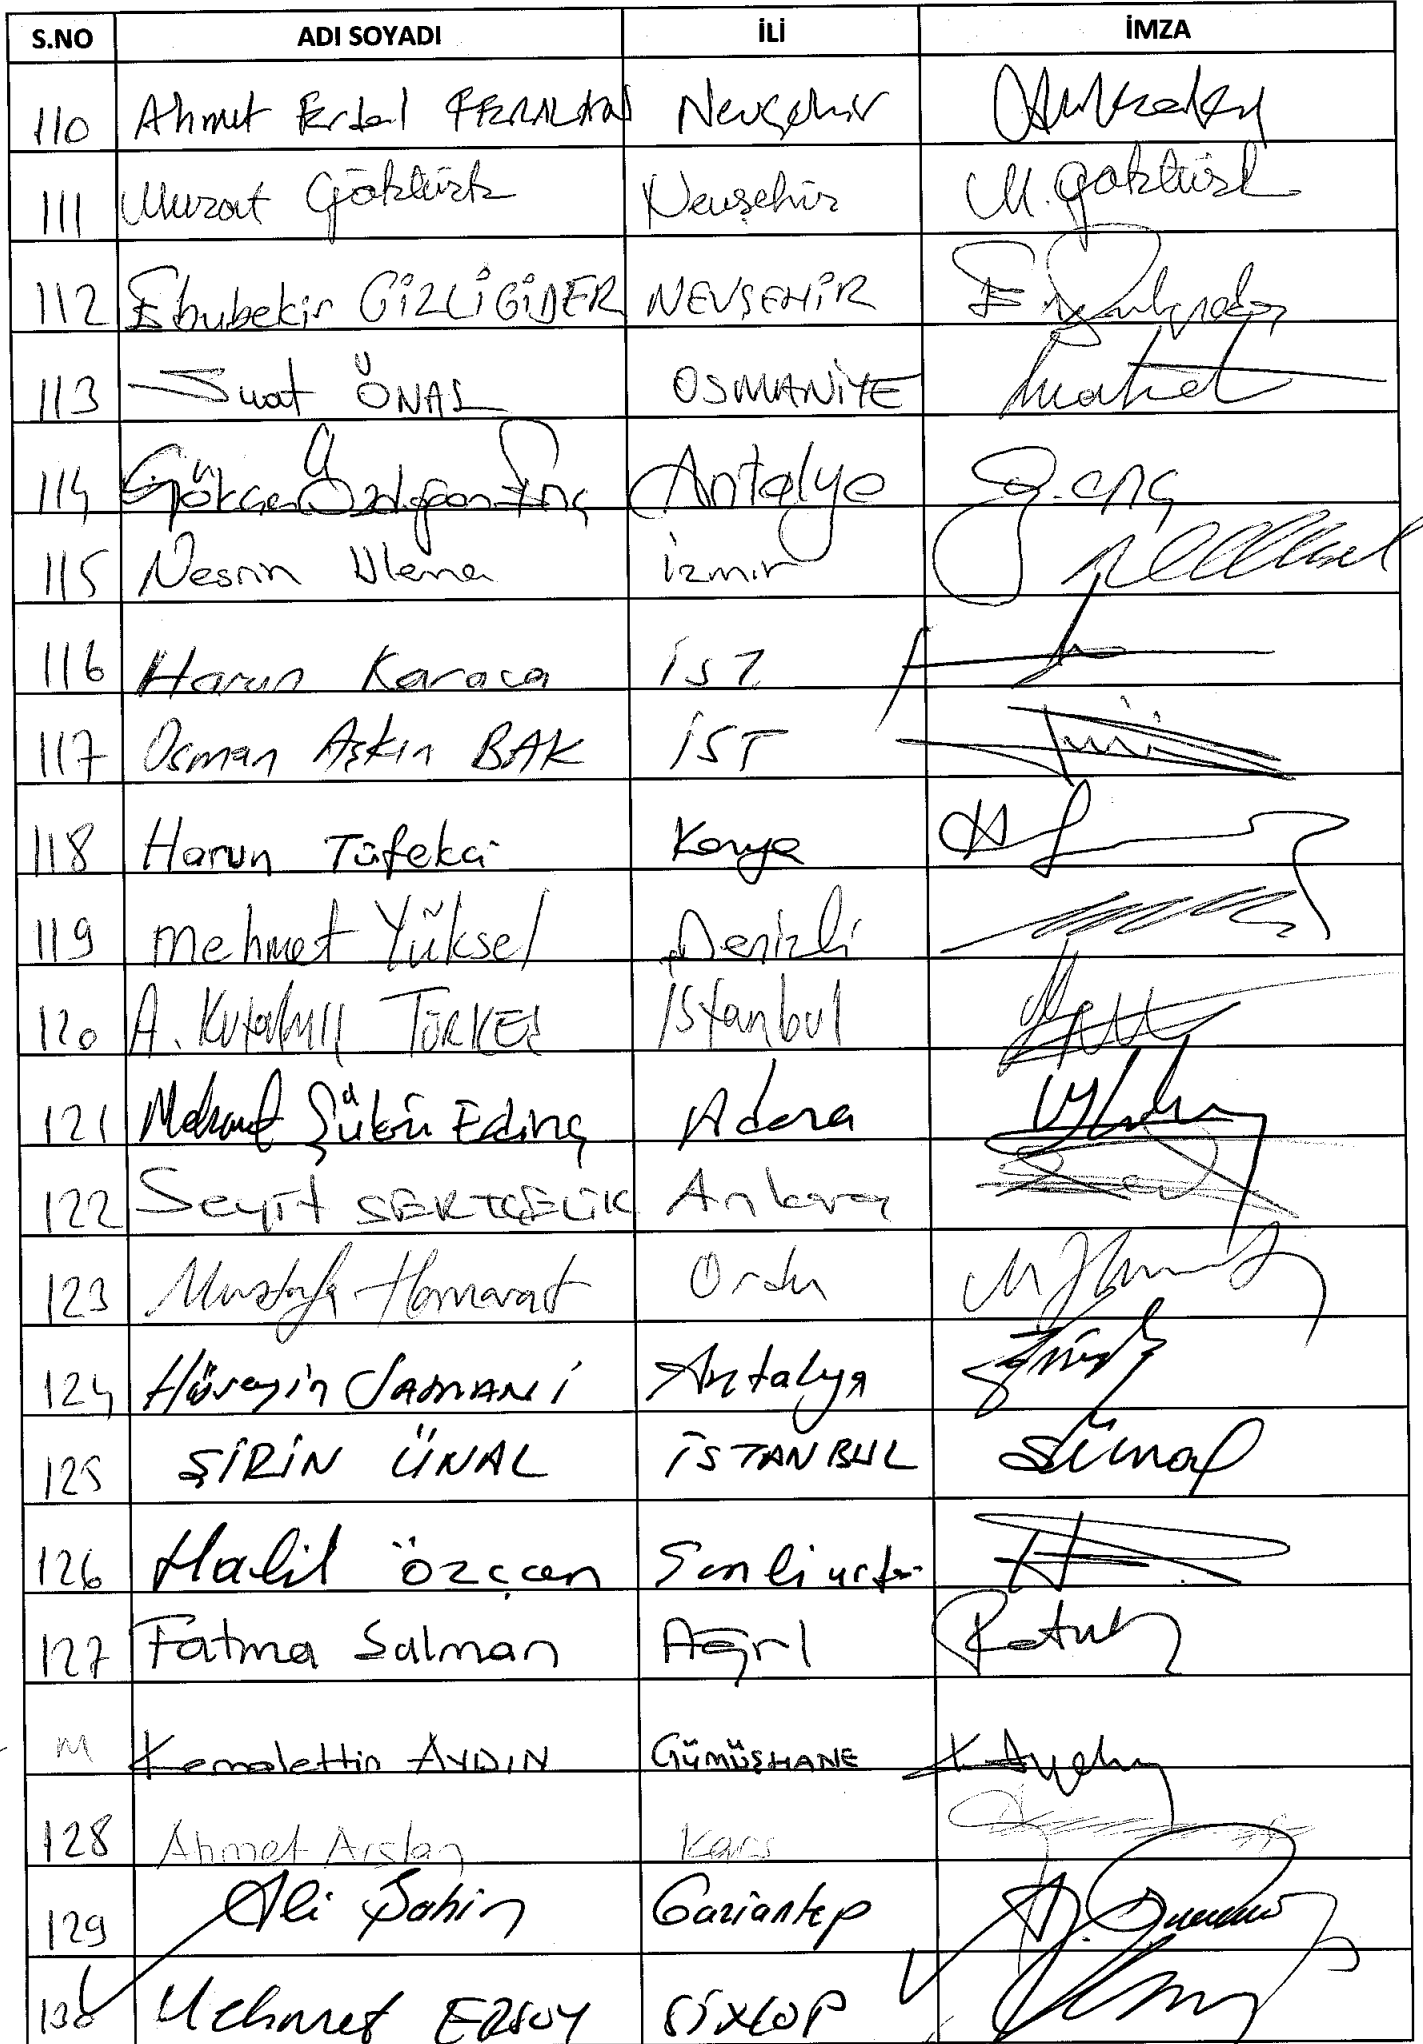 S.NO ADI SOYADI İLİ İMZA
110 Ahmet Erdal FERALAN Nevşehir
111 Murat Göktürk Nevşehir M. Göktürk
112 Ebubekir GİZLİGİDER NEVŞEHİR
113 Suat ÖNAL OSMANİYE
114 Gökcen Özdoğan Enç Antalya G. Enç
115 Nesrin Ulema İzmir
116 Harun Karaca İST
117 Osman Aşkın BAK İST
118 Harun Tüfekci Konya
119 Mehmet Yüksel Denizli
120 A. Kutalmış TÜRKEŞ İstanbul
121 Mehmet Şükrü Erdinç Adana
122 Seyit SERTÇELİK Ankara
123 Mustafa Hamarat Ordu
124 Hüseyin SAMANİ Antalya
125 ŞİRİN ÜNAL İSTANBUL SÜnal
126 Halil özçcan Şanlıurfa
127 Fatma Salman Ağrı
M Kemalettin AYDIN GÜMÜŞHANE K Aydın
128 Ahmet Arslan Kars
129 Ali Şahin Gaziantep
130 Mehmet ERSOY SİNOP